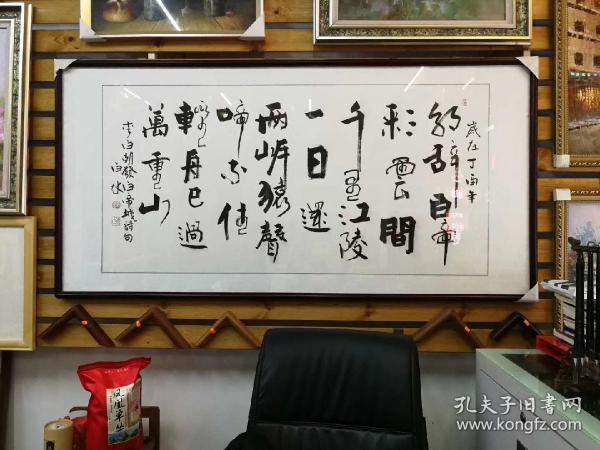 歲在丁酉年
朝辞白帝
彩雲間
千里江陵
一日還
兩岸猿聲
啼不住
輕舟已過
萬重山
李白朝發白帝城詩句
凤凰单丛
孔夫子旧书网
www.kongfz.com